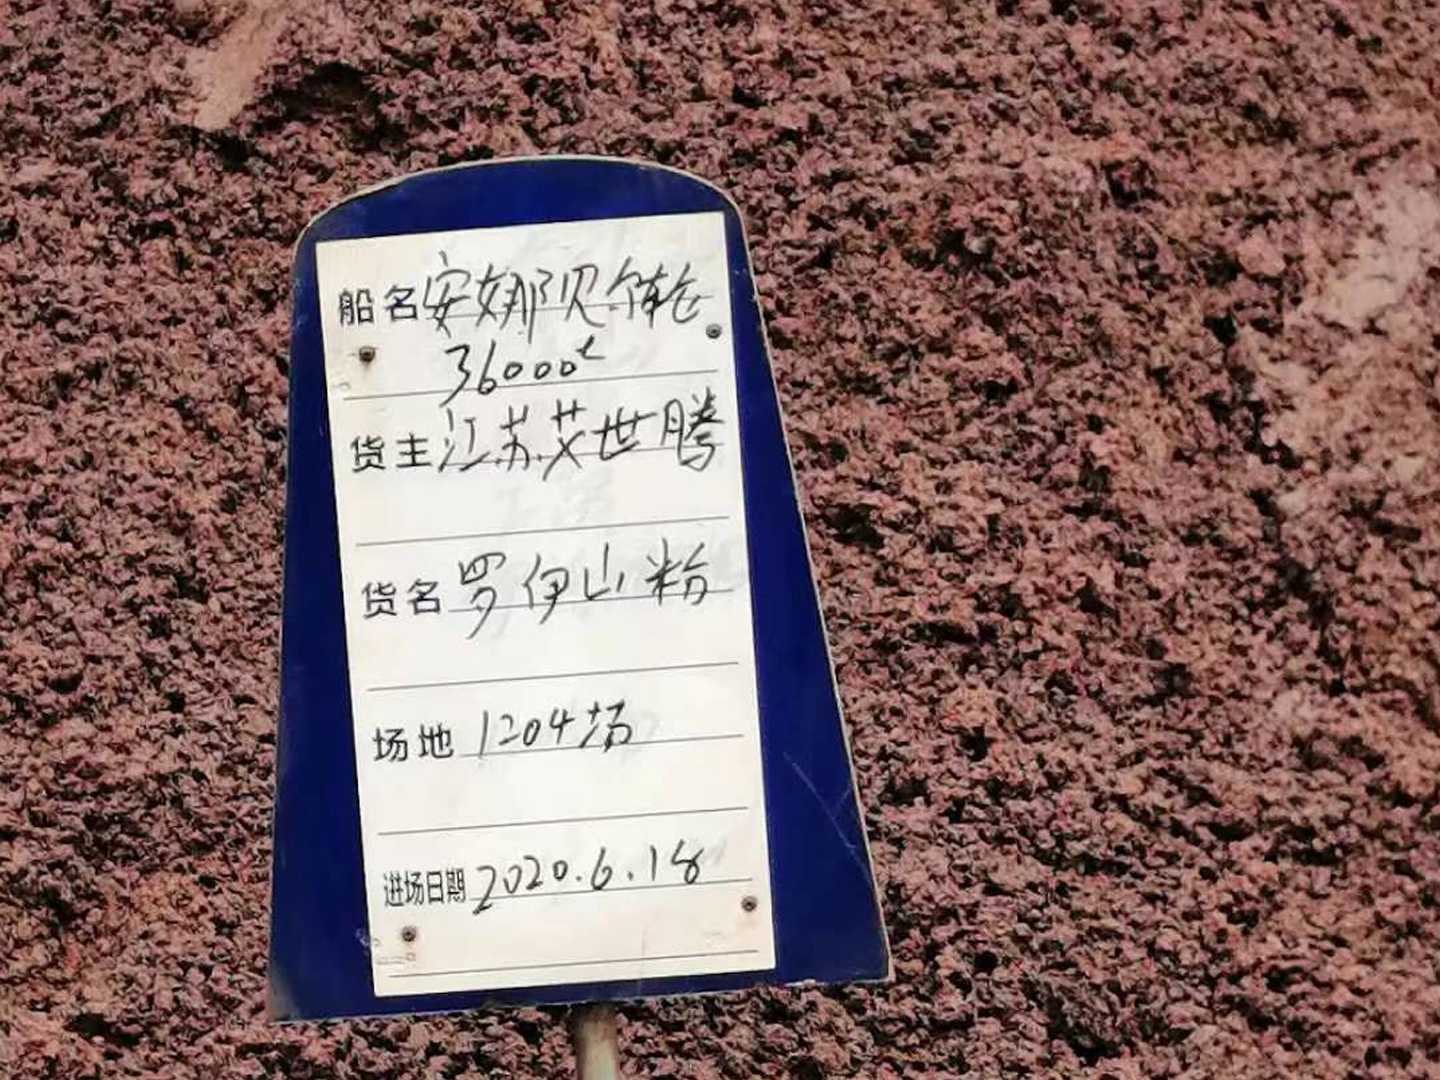 船名 安娜贝尔轮
36000t
货主 江苏艾世腾
货名 罗伊山粉
场地 1204场
进场日期 2020.6.18